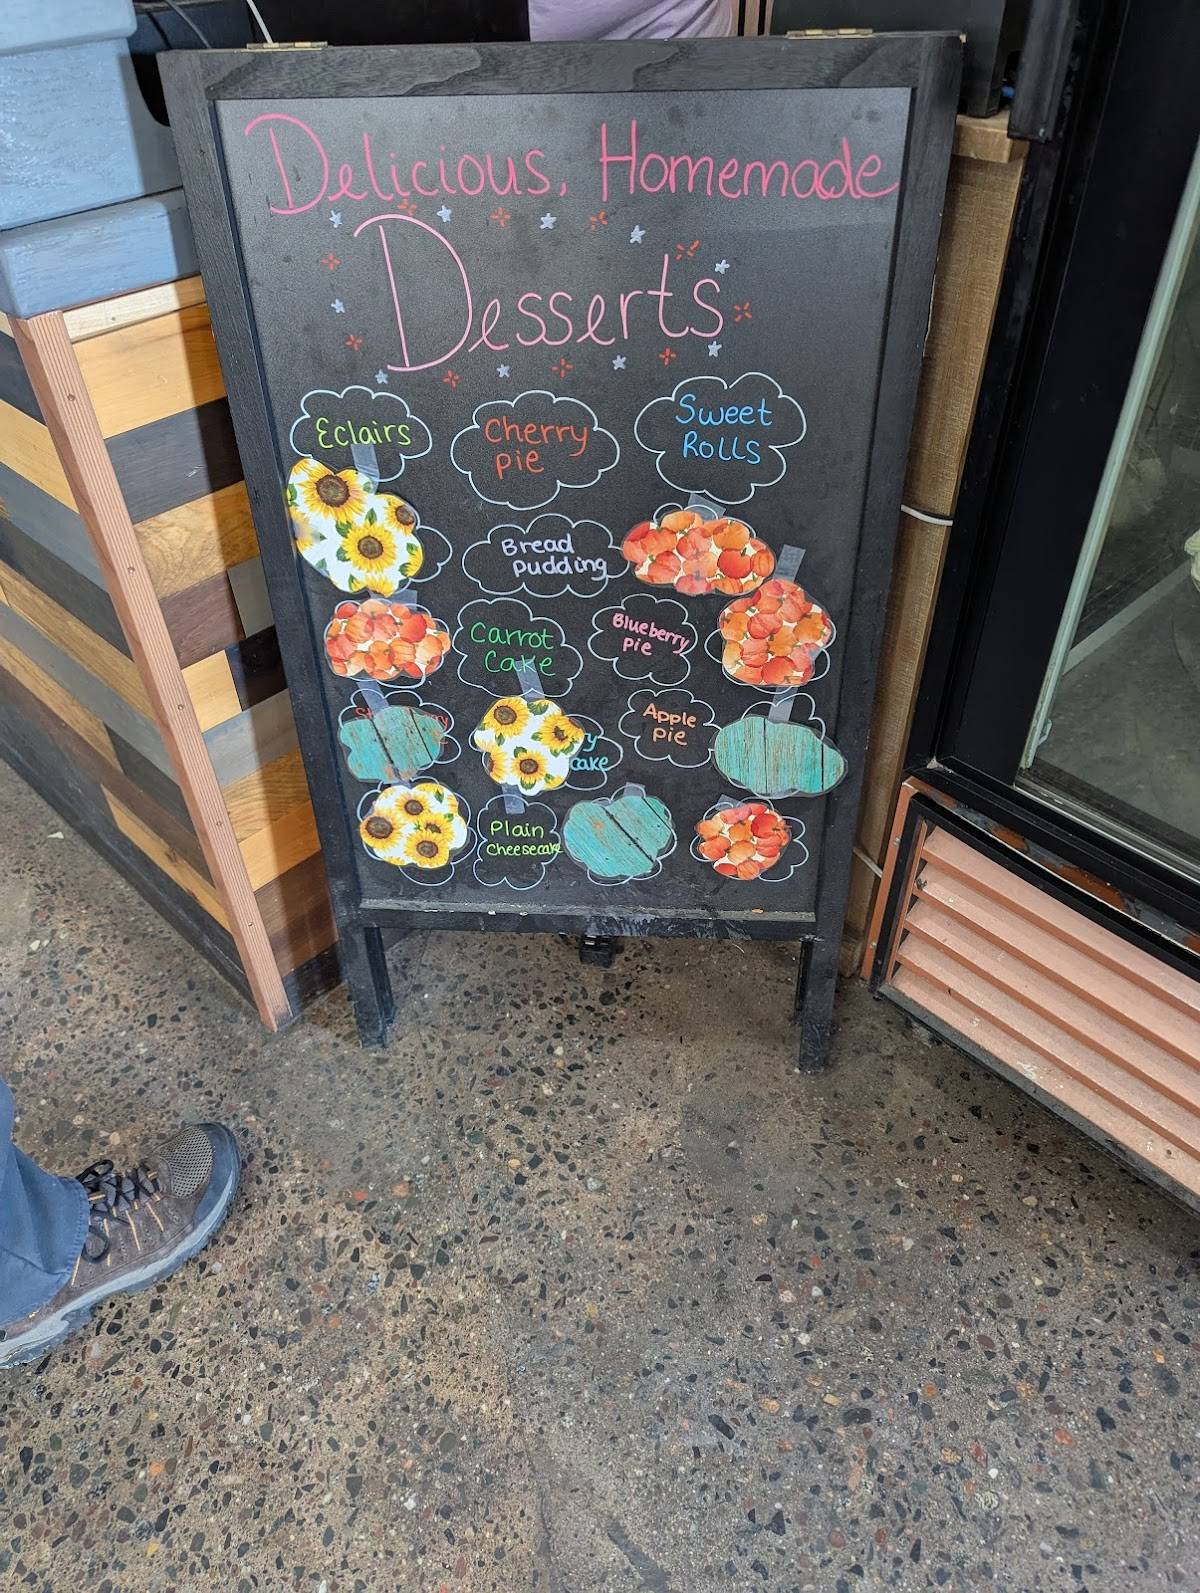 Delicious, Homemade
Desserts
Eclairs
Cherry
pie
Sweet
Rolls
Bread
pudding
Carrot
Cake
Blueberry
pie
Apple
pie
Plain
Cheesecake